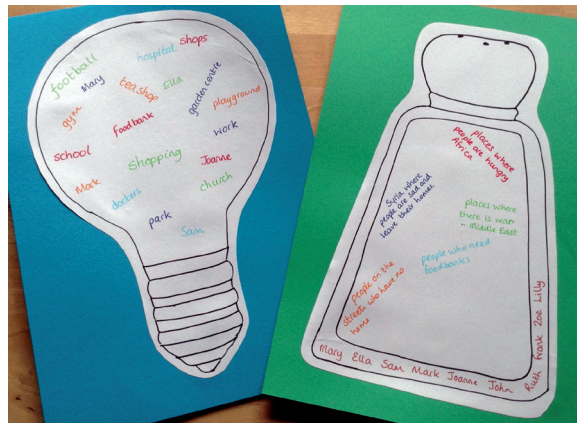 football
hospital
shops
Mary
tea shop
Ella
garden centre
playground
gym
foodbank
work
school
shopping
Joanne
Mark
doctors
church
park
Sam
places where
people are hungry
Africa
Syria where
people are sad and
leave their homes
places where
there is war
- Middle East
people who need
foodbanks
people on the
streets who have no
home
Mary Ella Sam Mark Joanne John
Ruth Frank Zoe Lilly